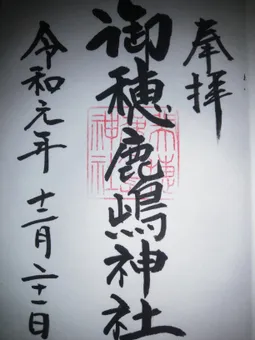 奉拝
御穂鹿嶋神社
令和元年十二月二十一日